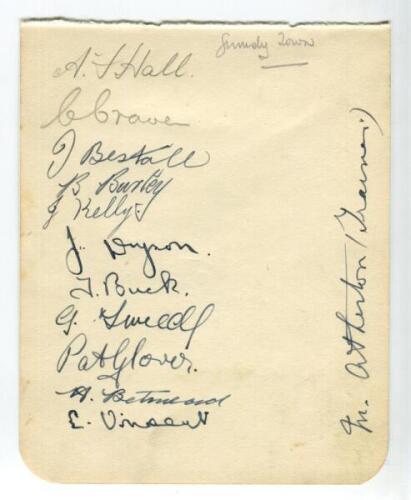 Grimsby Town
A. J. Hall.
C Craven
J Bestall
B. Burley
J Kelly
J. Dyson.
T. Buck.
G. Tweedy
Pat Glover.
E. Vincent
M. Atherton (Trainer.)